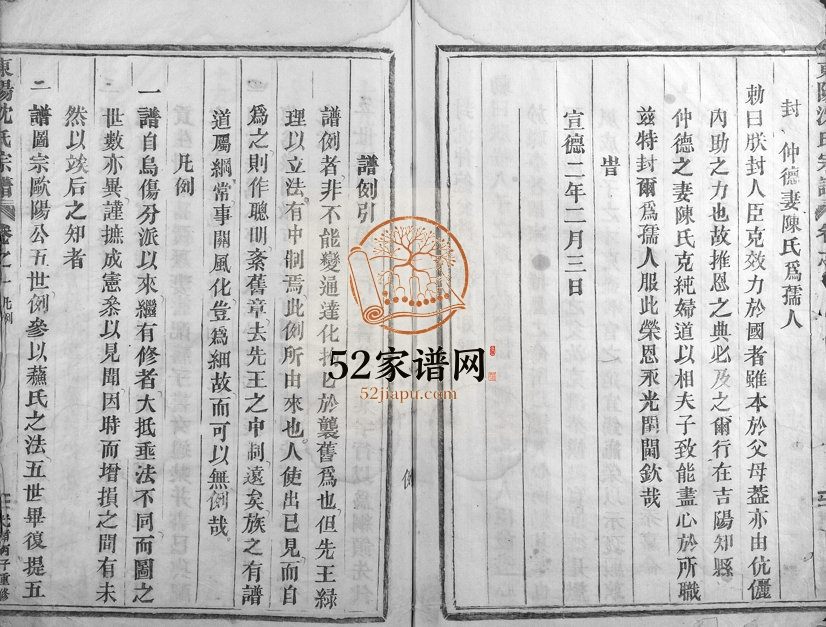 封　仲德妻陳氏爲孺人
勅曰朕封人臣克效力於國者雖本於父母葢亦由伉儷
內助之力也故推恩之典必及之爾行在吉陽知縣
仲德之妻陳氏克純婦道以相夫子致能盡心於所職
玆特封爾爲孺人服此榮恩永光閨閫欽哉
宣德二年二月三日
譜例引
譜例者非不能變通達化於襲舊爲也但先王緣
理以立法有中制焉此例所由來也人使出已見而自
爲之則作聰明紊舊章去先王之中制遠矣族之有譜
道屬綱常事關風化豈爲細故而可以無例哉
凡例
一譜自烏傷分派以來繼有修者大抵乖法不同而圖之
世數亦異謹摭成憲叅以見聞因時而增損之間有未
然以竢后之知者
二譜圖宗歐陽公五世例參以蘇氏之法五世畢復提五
東陽沈氏宗譜
卷之一
凡例
東陽沈氏宗譜
52家谱网
52jiapu.com